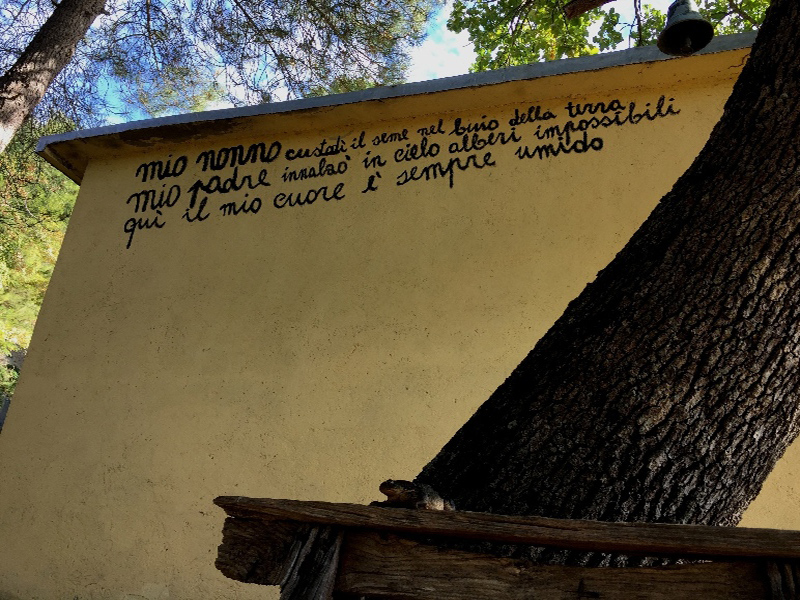 mio nonno custodì il seme nel buio della terra
mio padre innalzò in cielo alberi impossibili
quì il mio cuore è sempre umido